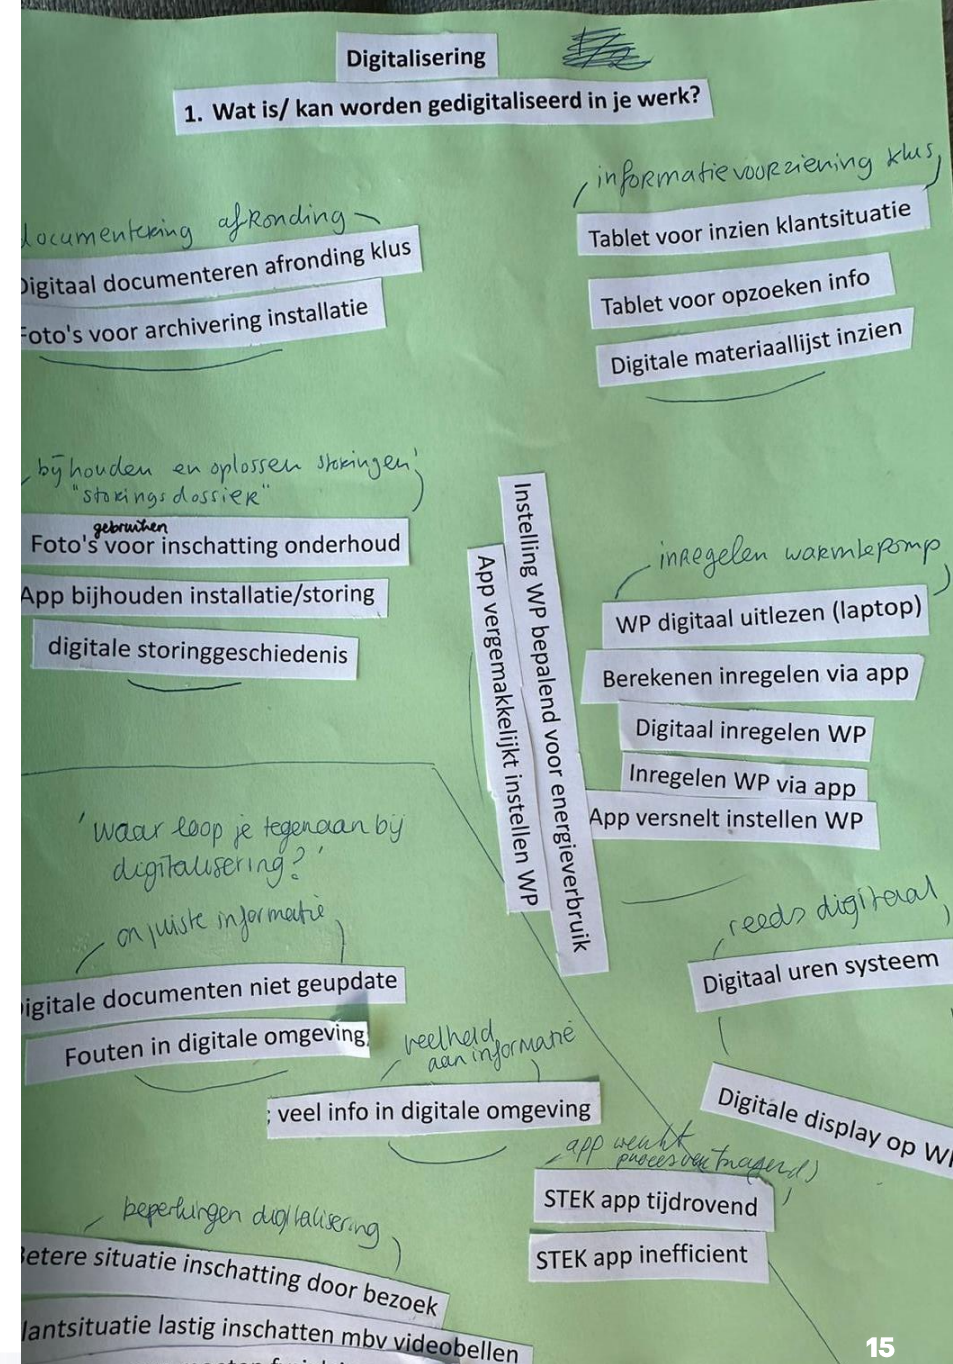 Digitalisering
1. Wat is/ kan worden gedigitaliseerd in je werk?
informatievoorziening klus
Tablet voor inzien klantsituatie
Tablet voor opzoeken info
Digitale materiaallijst inzien
documentering afronding
Digitaal documenteren afronding klus
Foto's voor archivering installatie
bijhouden en oplossen storingen
"storingsdossier"
gebruiken
Foto's voor inschatting onderhoud
App bijhouden installatie/storing
digitale storinggeschiedenis
Instelling WP bepalend voor energieverbruik
App vergemakkelijkt instellen WP
inregelen warmtepomp
WP digitaal uitlezen (laptop)
Berekenen inregelen via app
Digitaal inregelen WP
Inregelen WP via app
App versnelt instellen WP
reeds digitaal
Digitaal uren systeem
Digitale display op WP
'waar loop je tegenaan bij
digitalisering?'
onjuiste informatie
Digitale documenten niet geupdate
Fouten in digitale omgeving
veelheid
aan informatie
; veel info in digitale omgeving
app werkt
proces vertragend
STEK app tijdrovend
STEK app inefficient
beperkingen digitalisering
Betere situatie inschatting door bezoek
lantsituatie lastig inschatten mbv videobellen
15